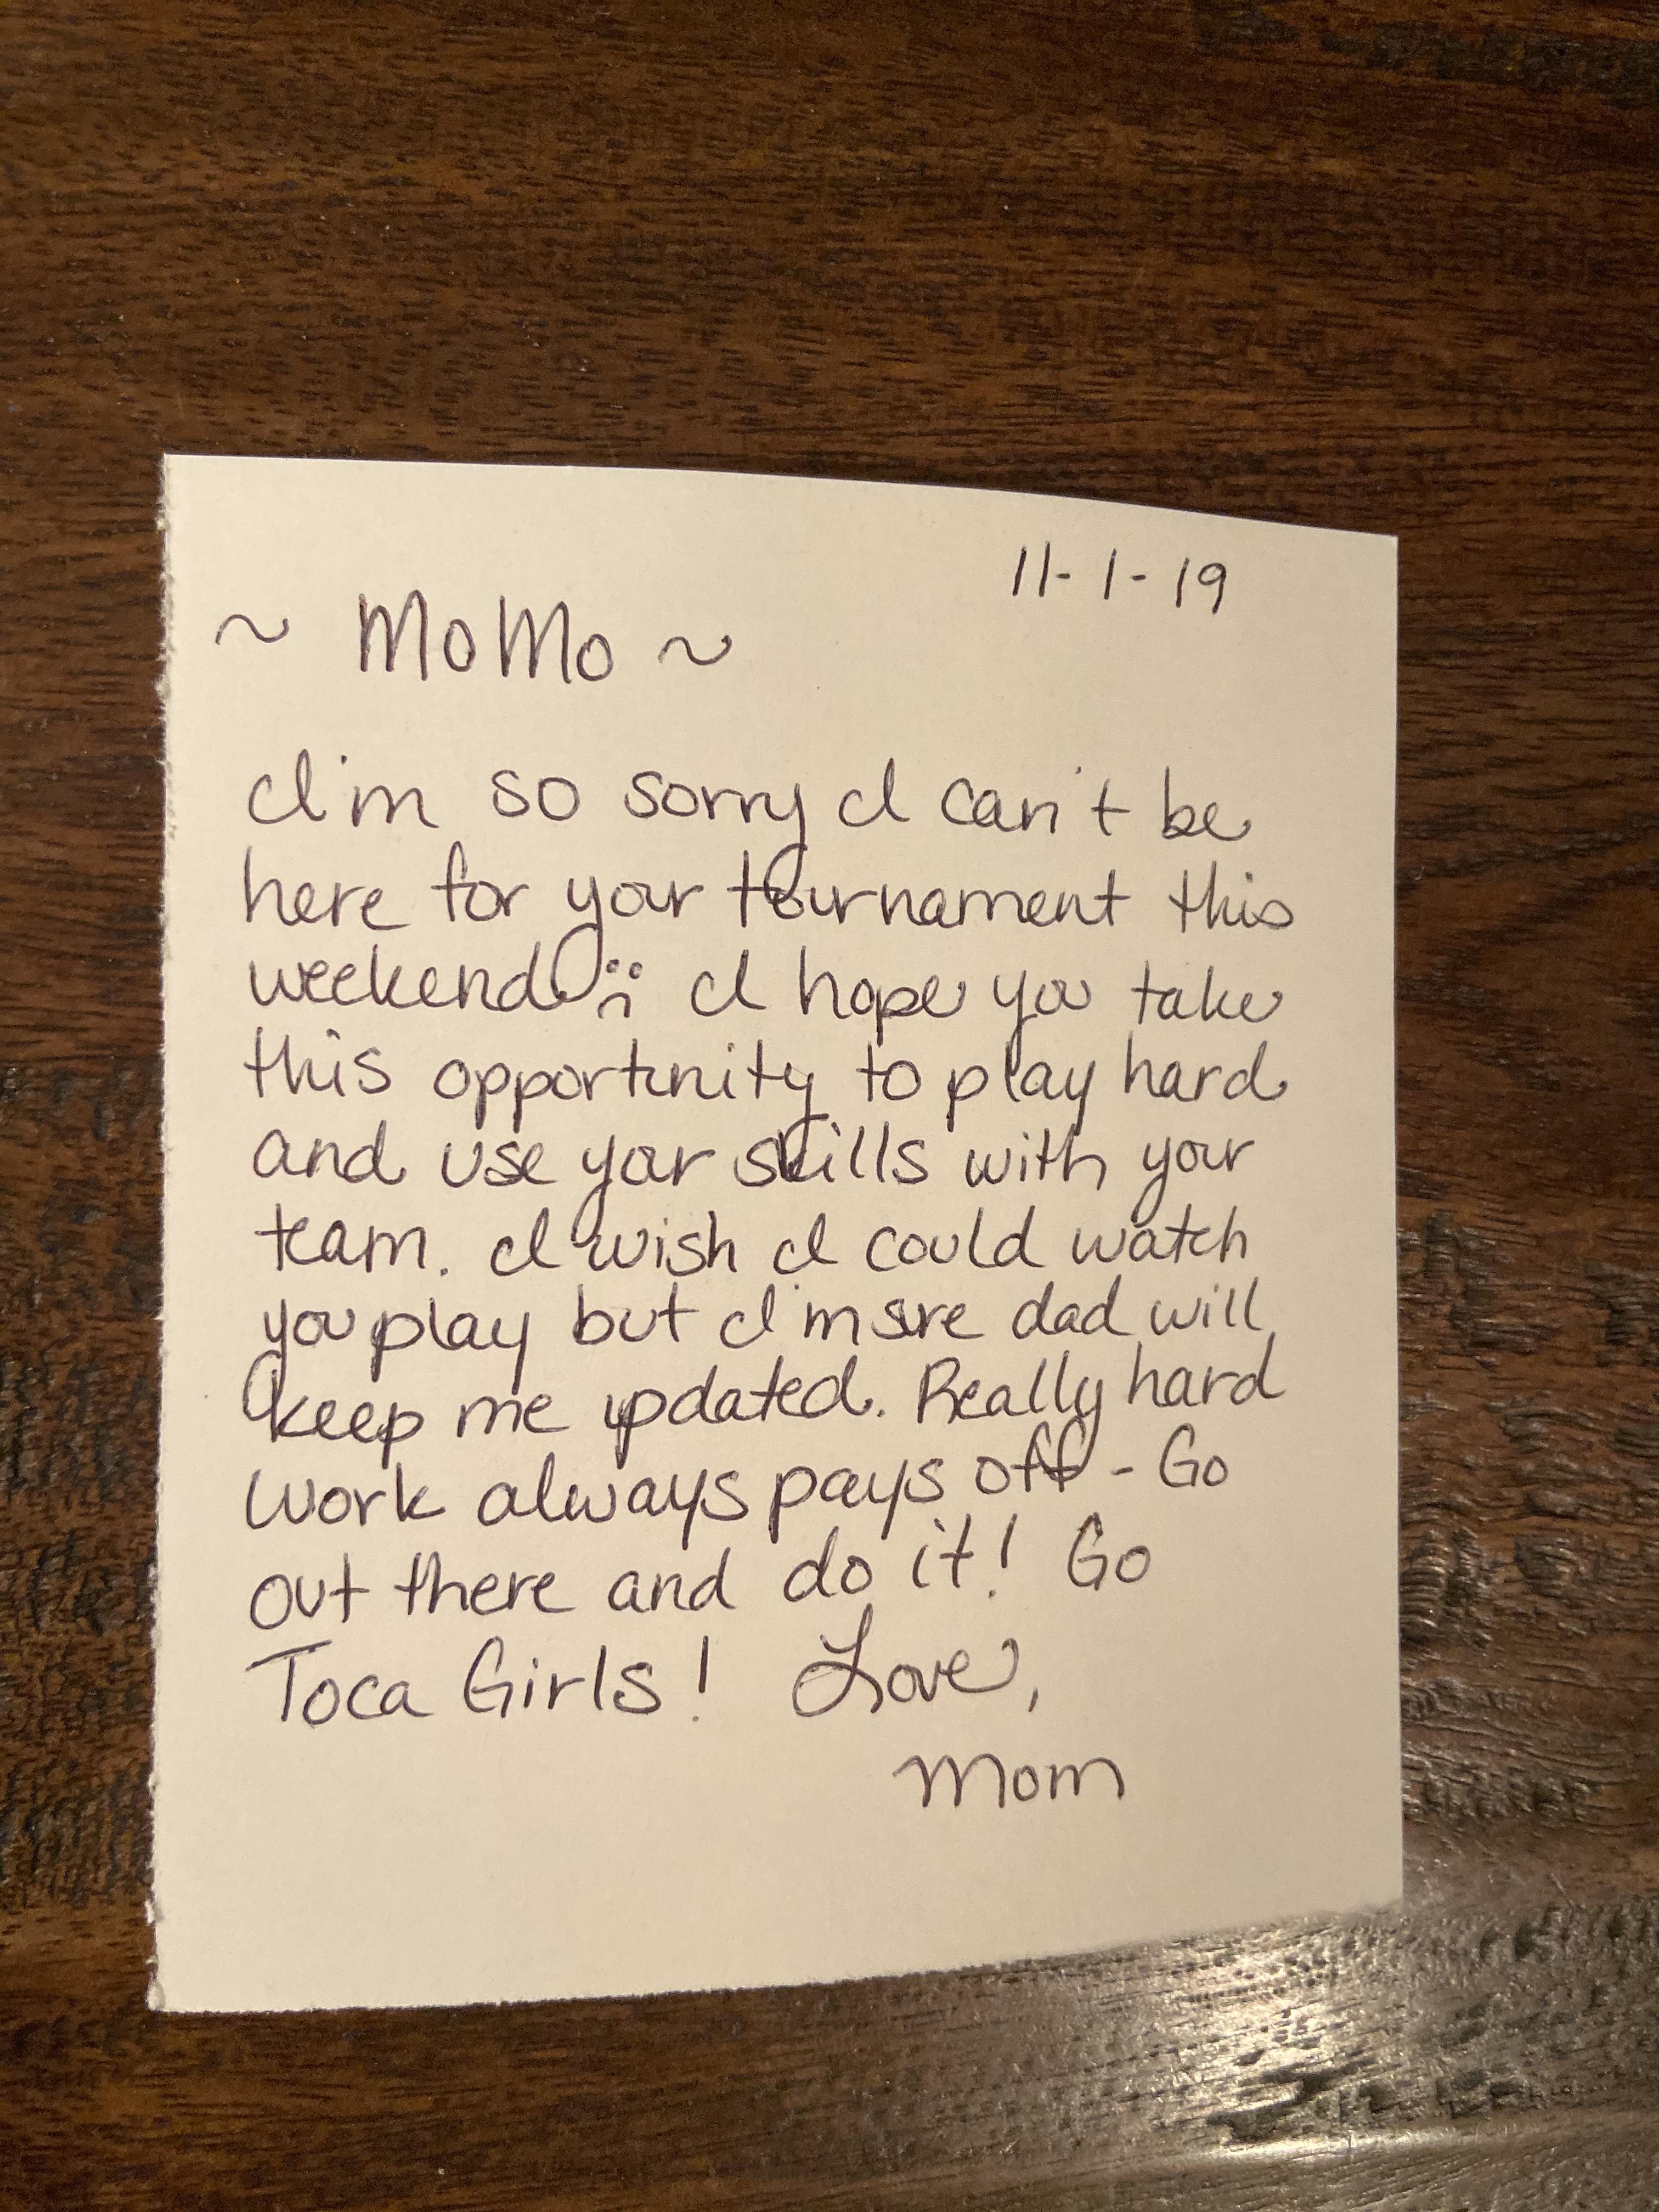 11-1-19
~ MoMo ~
I'm so sorry I can't be
here for your tournament this
weekend :( I hope you take
this opportunity to play hard
and use your skills with your
team. I wish I could watch
you play but I'm sure dad will
keep me updated. Really hard
work always pays off - Go
out there and do it! Go
Toca Girls! Love,
Mom